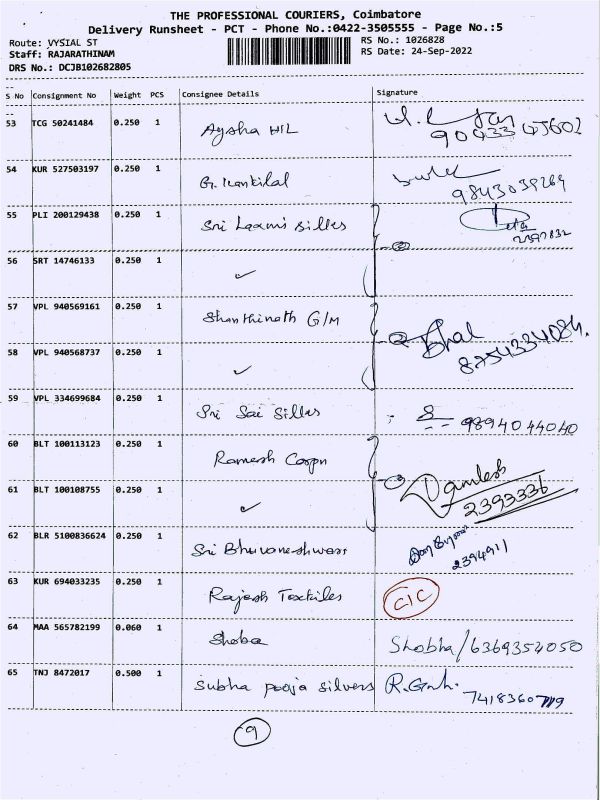 THE PROFESSIONAL COURIERS, Coimbatore
Delivery Runsheet - PCT - Phone No.:0422-3505555 - Page No.:5
Route: VYSIAL ST RS No.: 1026828
Staff: RAJARATHINAM RS Date: 24-Sep-2022
DRS No.: DCJB102682805
S No Consignment No Weight PCS Consignee Details Signature
53 TCG 50241484 0.250 1 Aysha HIL
54 KUR 527503197 0.250 1 9843039269
55 PLI 200129438 0.250 1 Sri Laxmi silks 2397832
56 SRT 14746133 0.250 1 ✓
57 VPL 940569161 0.250 1 Shanthinath G/M
58 VPL 940568737 0.250 1 ✓ 8754334084.
59 VPL 334699684 0.250 1 Sri Sai Silks 9894044040
60 BLT 100113123 0.250 1 Ramesh Corpn
61 BLT 100108755 0.250 1 ✓ 2393336
62 BLR 5100836624 0.250 1 Sri Bhuvaneshwari 2394911
63 KUR 694033235 0.250 1 Rajesh Textiles CIC
64 MAA 565782199 0.060 1 Shoba Shobha/6369354050
65 TNJ 8472017 0.500 1 Subha pooja silvers
9